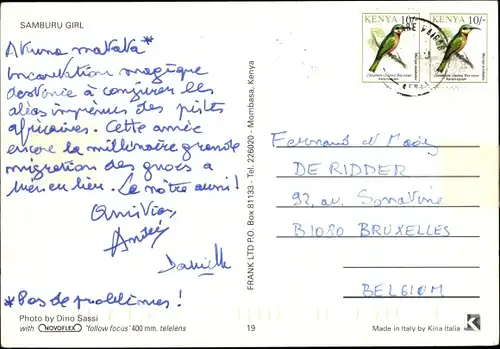 SAMBURU GIRL
Akuna matata*
Incantation magique
destinée à conjurer les
aléas imprévus des pistes
africaines. Cette année
encore la millénaire grande
migration des gnous a
bien eu lieu. La nôtre aussi!
Amitiés
André
Danielle
*Pas de problèmes!
Photo by Dino Sassi
with NOVOFLEX "follow focus" 400 mm. telelens
FRANK LTD P.O. Box 81133 - Tel. 226020 - Mombasa, Kenya
19
KENYA 10/-
KENYA 10/-
Fernand et
DE RIDDER
92, av
B1080 BRUXELLES
BELGIUM
Made in Italy by Kina Italia
K